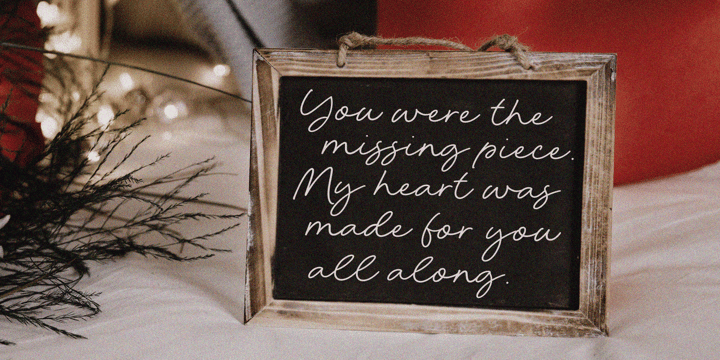 You were the
missing piece.
My heart was
made for you
all along.